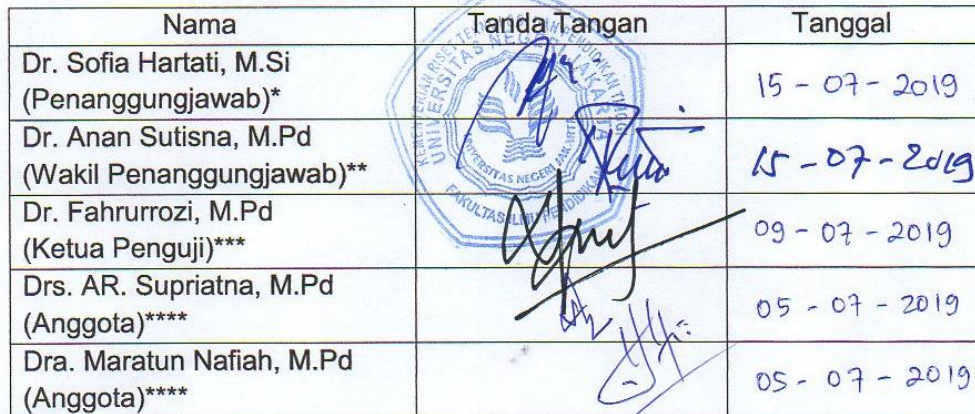 Nama Tanda Tangan Tanggal
Dr. Sofia Hartati, M.Si
(Penanggungjawab)* 15 - 07 - 2019
Dr. Anan Sutisna, M.Pd
(Wakil Penanggungjawab)** 15 - 07 - 2019
Dr. Fahrurrozi, M.Pd
(Ketua Penguji)*** 09 - 07 - 2019
Drs. AR. Supriatna, M.Pd
(Anggota)**** 05 - 07 - 2019
Dra. Maratun Nafiah, M.Pd
(Anggota)**** 05 - 07 - 2019
UNIVERSITAS NEGERI JAKARTA
UNIVERSITAS NEGERI JAKARTA
FAKULTAS ILMU PENDIDIKAN